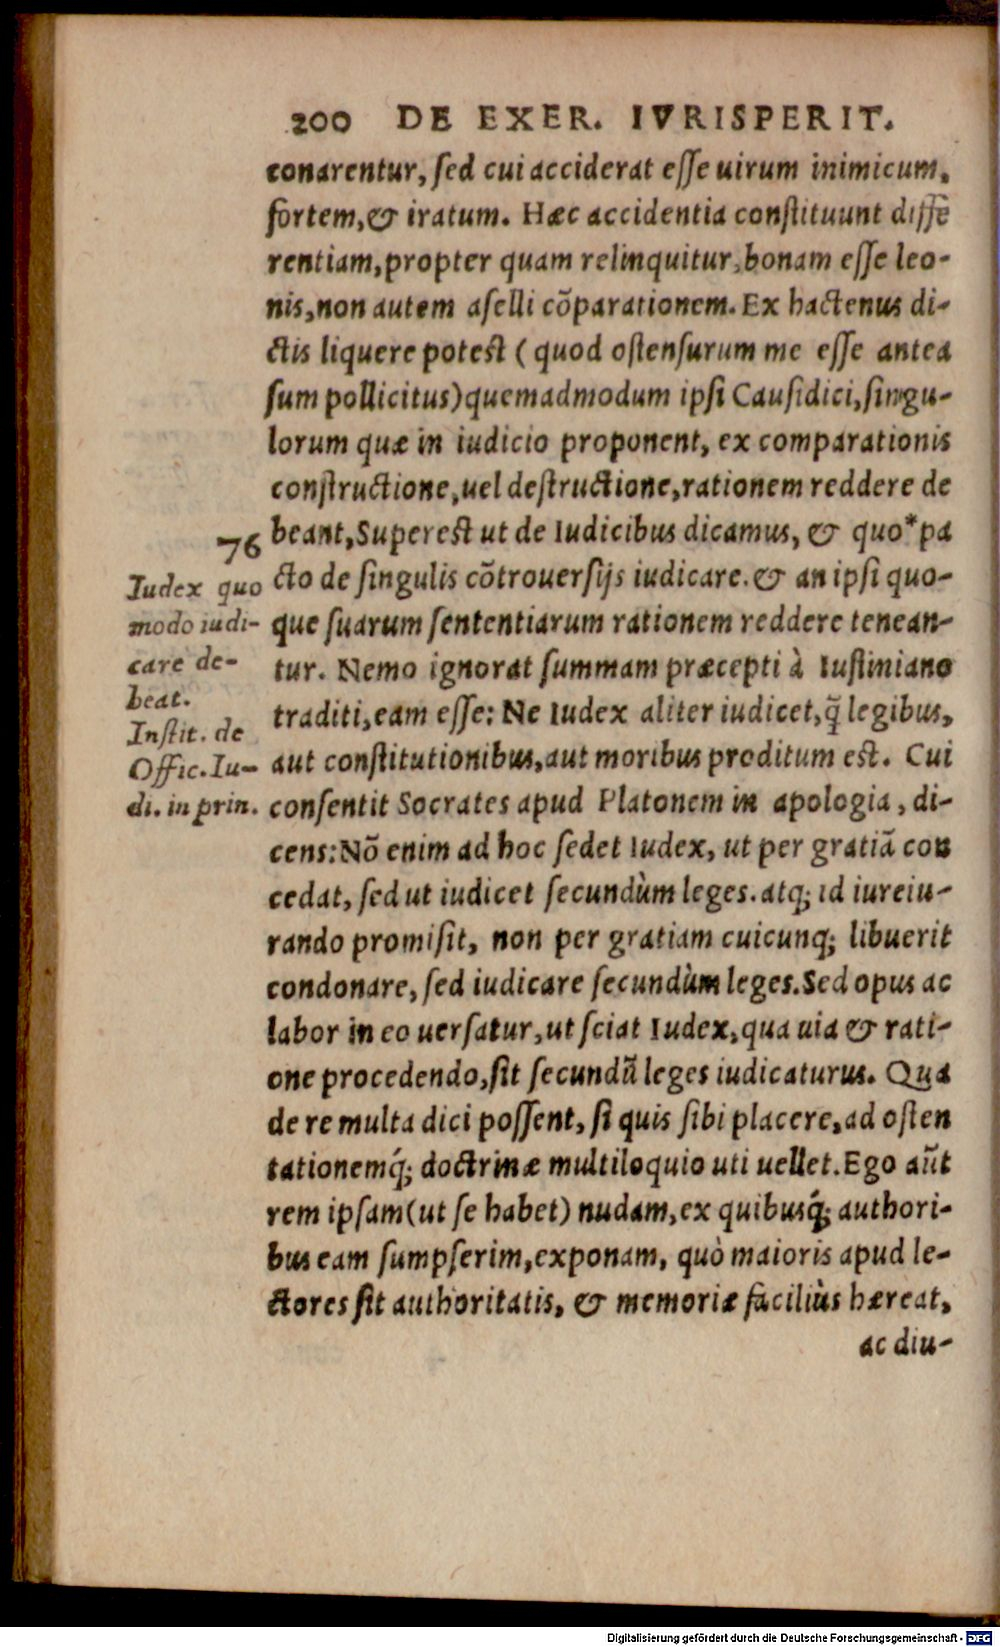 200 DE EXER. IVRISPERIT.
conarentur, sed cui acciderat esse uirum inimicum,
fortem, & iratum. Hæc accidentia constituunt diffe
rentiam, propter quam relinquitur, bonam esse leo-
nis, non autem aselli cõparationem. Ex hactenus di-
ctis liquere potest ( quod ostensurum me esse antea
sum pollicitus) quemadmodum ipsi Causidici, singu-
lorum quæ in iudicio proponent, ex comparationis
constructione, uel destructione, rationem reddere de
beant, Superest ut de Iudicibus dicamus, & quo*pa
cto de singulis cõtrouersijs iudicare. & an ipsi quo-
que suarum sententiarum rationem reddere tenean-
tur. Nemo ignorat summam præcepti à Iustiniano
traditi, eam esse: Ne Iudex aliter iudicet, q̃ legibus,
aut constitutionibus, aut moribus proditum est. Cui
consentit Socrates apud Platonem in apologia, di-
cens: Nõ enim ad hoc sedet Iudex, ut per gratiã con
cedat, sed ut iudicet secundùm leges. atq; id iureiu-
rando promisit, non per gratiam cuicunq; libuerit
condonare, sed iudicare secundùm leges. Sed opus ac
labor in eo uersatur, ut sciat Iudex, qua uia & rati-
one procedendo, sit secundũ leges iudicaturus. Qua
de re multa dici possent, si quis sibi placere, ad osten
tationemq́; doctrinæ multiloquio uti uellet. Ego aũt
rem ipsam (ut se habet) nudam, ex quibusq́; authori-
bus eam sumpserim, exponam, quò maioris apud le-
ctores sit authoritatis, & memoriæ faciliùs hæreat,
ac diu-
76
Iudex quo
modo iudi-
care de-
beat.
Instit. de
Offic. Iu-
di. in prin.
Digitalisierung gefördert durch die Deutsche Forschungsgemeinschaft - DFG